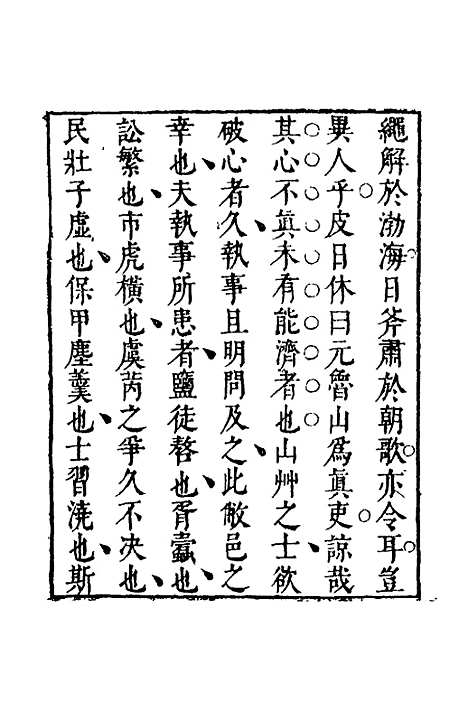 繩解於渤海日斧肅於朝歌亦令耳豈
異人乎皮日休曰元魯山爲眞吏諒哉
其心不眞未有能濟者也山艸之士欲
破心者久執事且明問及之此敝邑之
幸也夫執事所患者鹽徒嗸也胥蠹也
訟繁也市虎橫也虞芮之爭久不决也
民壯子虛也保甲塵羹也士習澆也斯